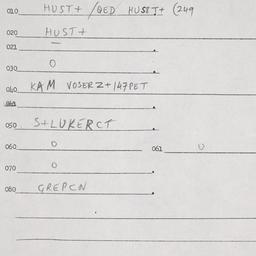 010 HUST+ /QED HUSET+ (249
020 HUST+
021 —
030 0
040 KAM VOSERZ+/47PET
050 S+LUKERCT
060 0 061 0
070 0
080 GREPCN